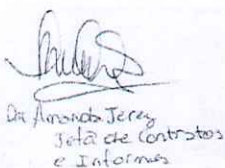 Dra Amanda Jerez
Jefa de Contratos
e Informes